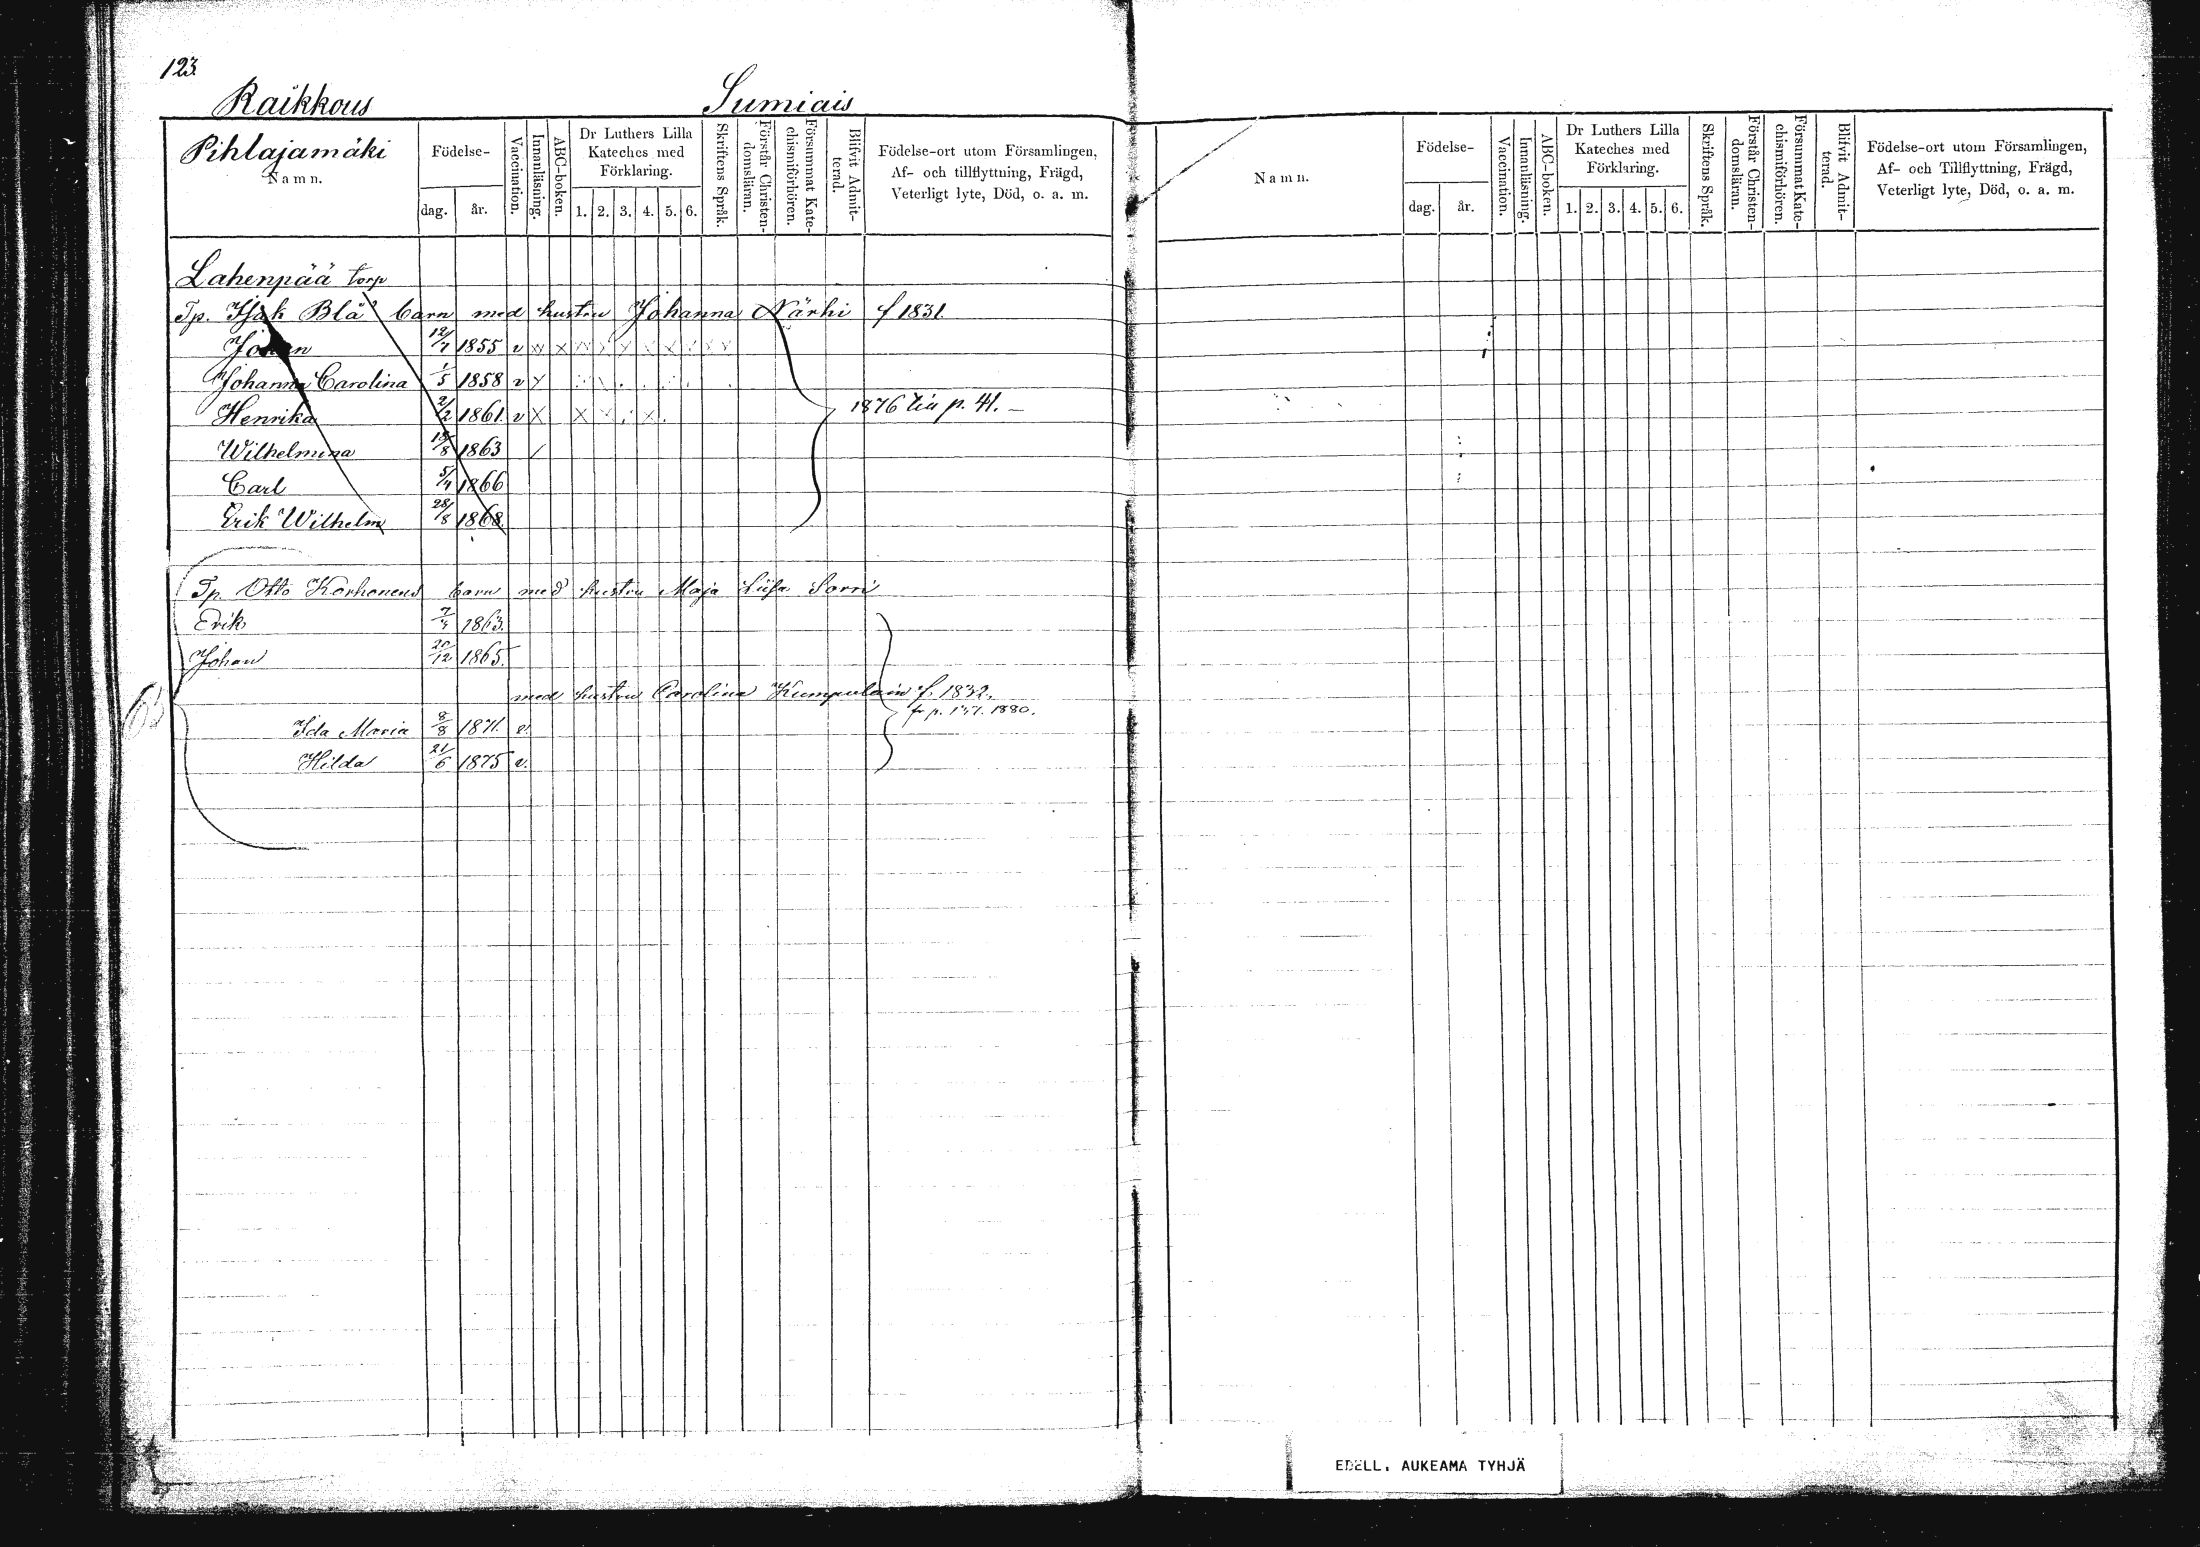 123.
Raikkous Sumiais
Pihlajamäki
Namn.
Födelse-
dag. år.
Vaccination.
Innanläsning.
ABC-boken.
Dr Luthers Lilla
Kateches med
Förklaring.
1. 2. 3. 4. 5. 6.
Skriftens Språk.
Förstår Christen-
domsläran.
Försummat Kate-
chismiförhören.
Blifvit Admit-
terad.
Födelse-ort utom Församlingen,
Af- och tillflyttning, Frägd,
Veterligt lyte, Död, o. a. m.
Lahenpää torp
Tp. Isak Blå barn med hustru Johanna Närhi f 1831.
Johan 12/7 1855 v
Johanna Carolina 1/5 1858 v
Henrika 2/2 1861. v
1876 till p. 41. –
Wilhelmina 1863
Carl 5/4 1866
Erik Wilhelm 28/8 1868.
Tp. Otto Korhonens barn med hustru Maja Liisa Sorri
Erik 1863.
Johan 1865.
med hustru Carolina Kumpulain f. 1832.
fr p. 1880.
Ida Maria 8/8 1871. v.
Hilda 21/6 1875 v.
Namn.
Födelse-
dag. år.
Vaccination.
Innanläsning.
ABC-boken.
Dr Luthers Lilla
Kateches med
Förklaring.
1. 2. 3. 4. 5. 6.
Skriftens Språk.
Förstår Christen-
domsläran.
Försummat Kate-
chismiförhören.
Blifvit Admit-
terad.
Födelse-ort utom Församlingen,
Af- och Tillflyttning, Frägd,
Veterligt lyte, Död, o. a. m.
EDELL. AUKEAMA TYHJÄ